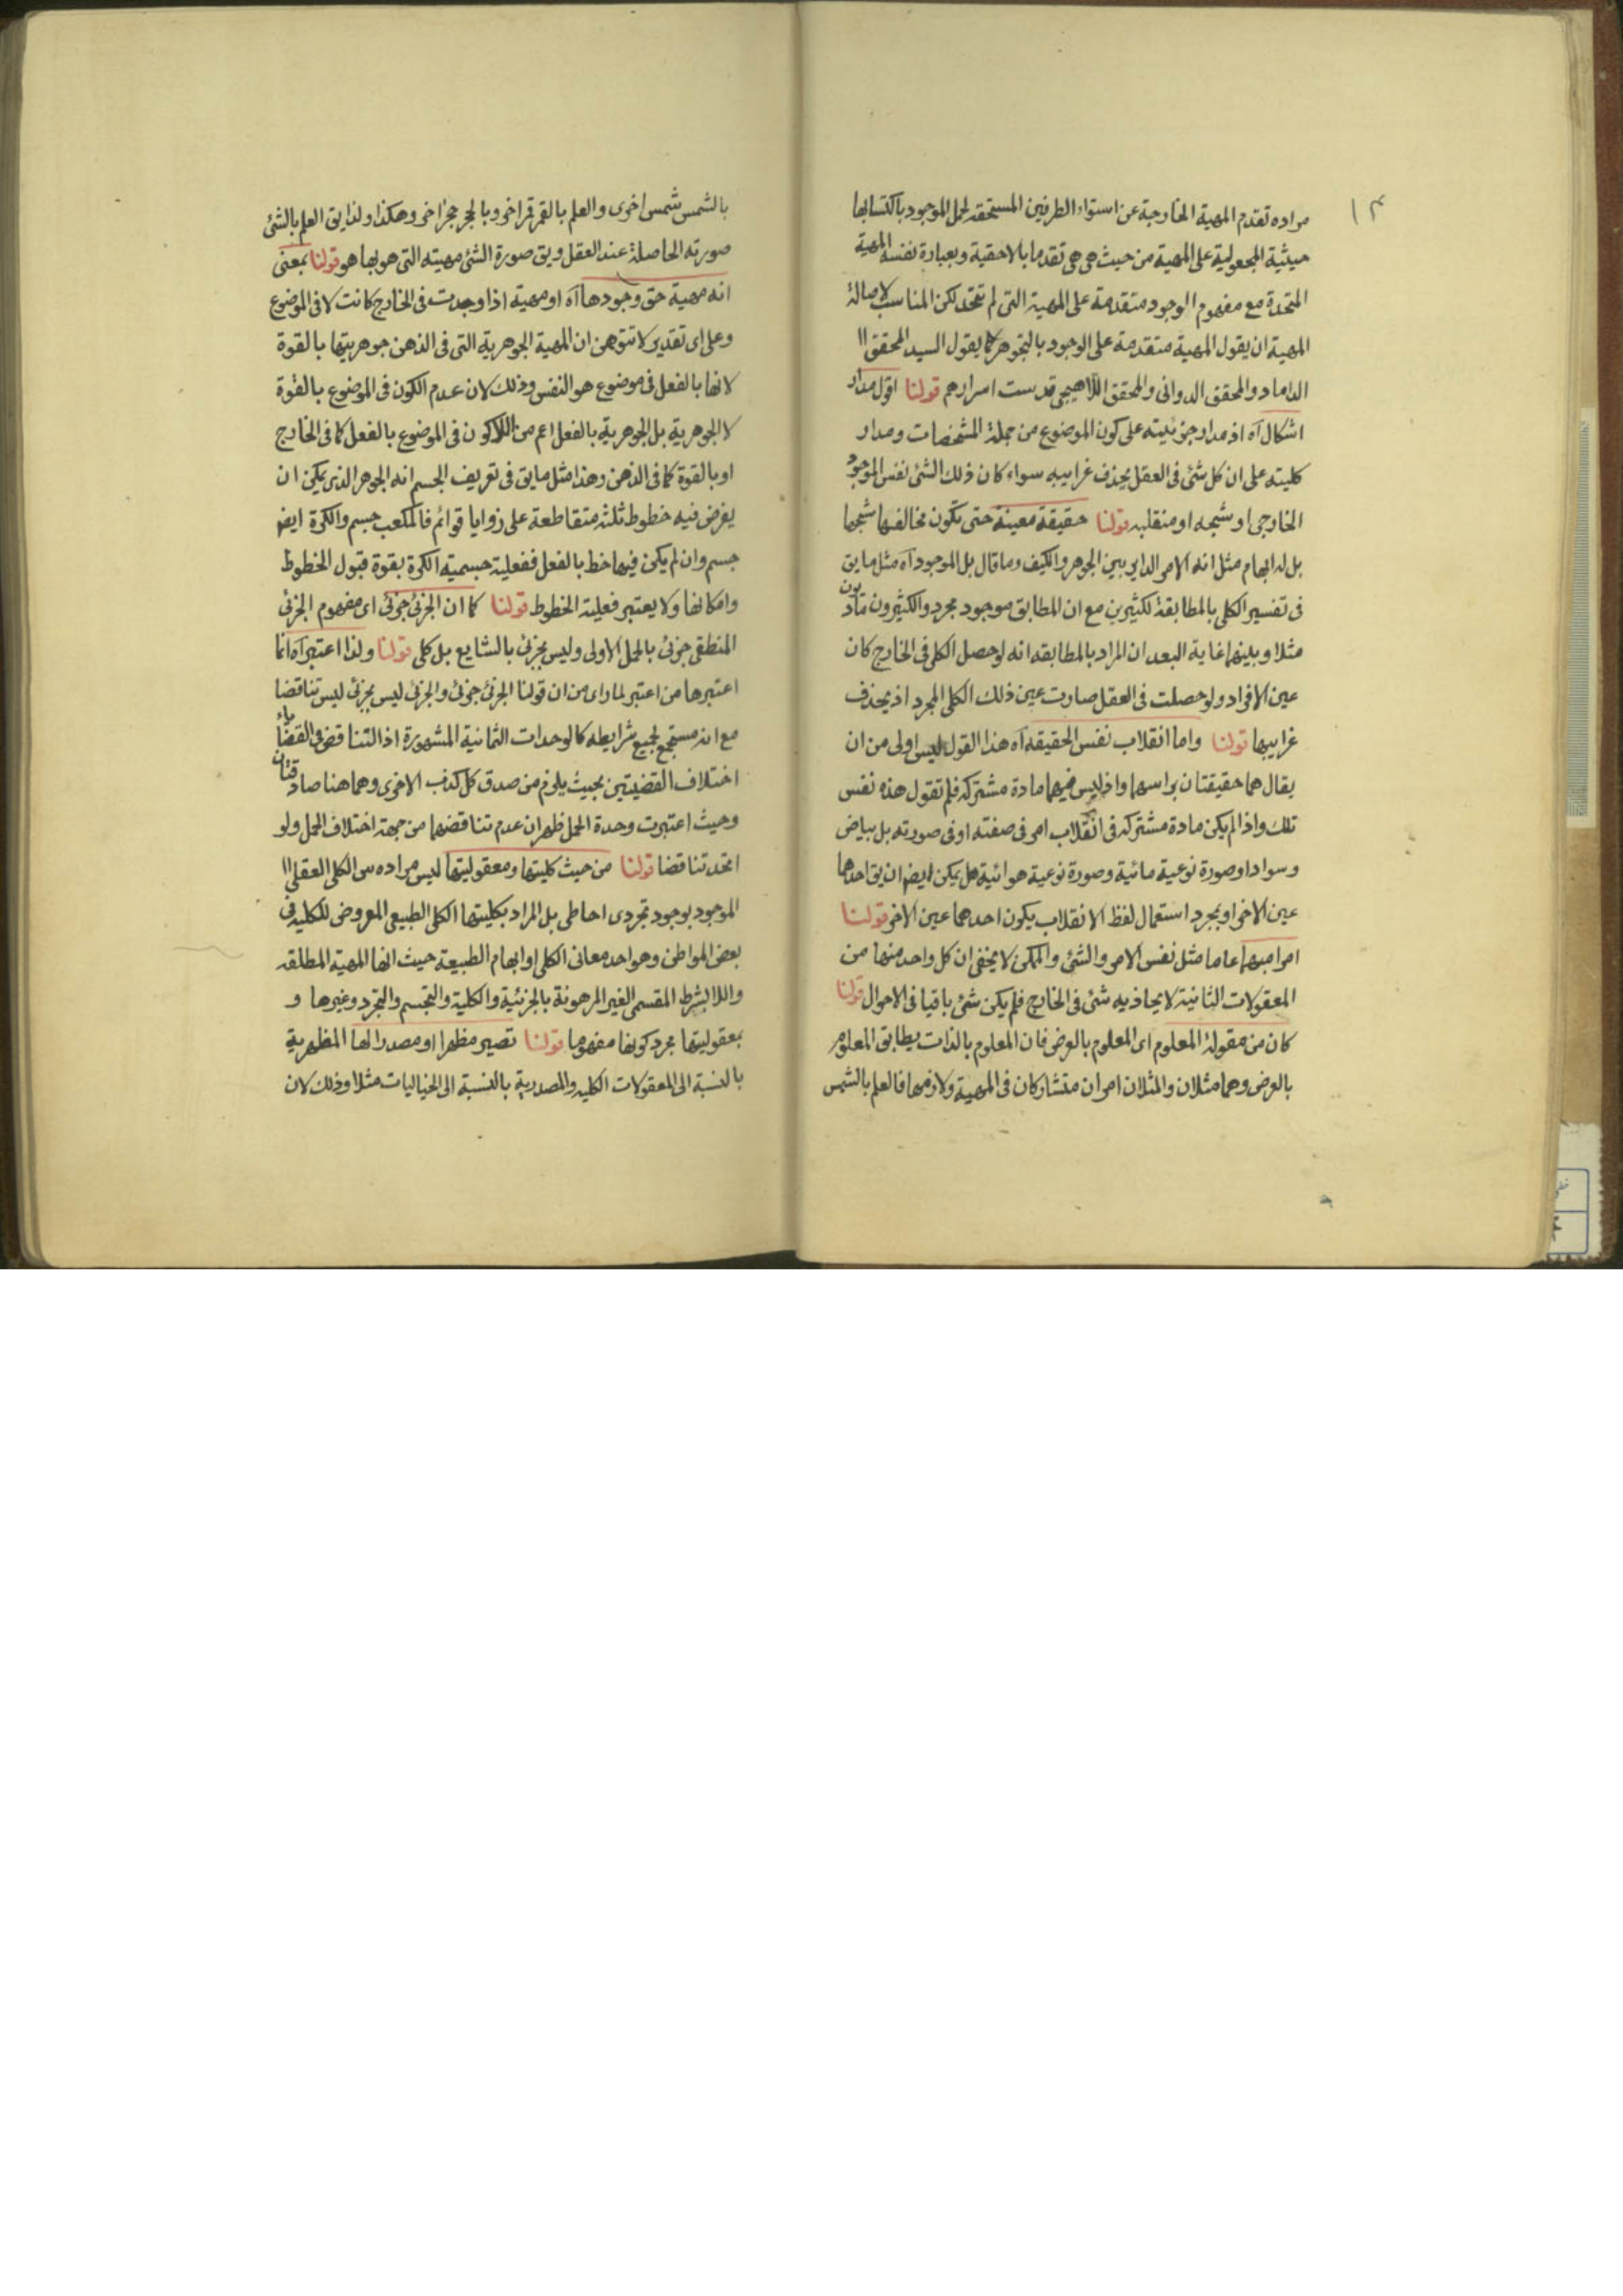 ۱۳
مراده تقدم المهية الخارجة عن استواء الطرفين المستحقة لحمل الموجود باكتسابها
حيثية المجعولية على المهية من حيث هى هى تقدما بالاحقية وبعبارة نفس المهية
المتحدة مع مفهوم الوجود متقدمة على المهية التى لم تتحد لكن المناسب لاصالة
المهية ان يقول المهية متقدمة على الوجود بالتجوهر كما يقول السيد المحقق اا
الداماد والمحقق الدوانى والمحقق اللاهيجى قدست اسرارهم قولنا اقول مدار
اشكال آه اذ مدار جزئيته على كون الموضوع من جملة المشخصات ومدار
كليته على ان كل شئ فى العقل يحذف غرايبه سواء كان ذلك الشئ نفس الموجود
الخارجى او شبحه او منقلبه قولنا حقيقة معينة حتى تكون مخالفها شبحها
بل له ابهام مثل انه الامر الداير بين الجوهر والكيف وما قال بل الموجود آه مثل مايق
فى تفسير الكلى بالمطابقة لكثيرين مع ان المطابق موجود مجرد والكثيرون مادّيون
مثلا وبينهما غاية البعد ان المراد بالمطابقه انه لو حصل الكلى فى الخارج كان
عين الافراد ولو حصلت فى العقل صارت عين ذلك الكلى المجرد اذ يحذف
غرايبها قولنا واما انقلاب نفس الحقيقه آه هذا القول ليس اولى من ان
يقال هما حقيقتان براسهما واذ ليس فيهما مادة مشتركه فلم تقول هذه نفس
تلك واذا لم يكن مادة مشتركه فى انقلاب امر فى صفته او فى صورته بل بياض
وسواد او صورة نوعية مائية وصورة نوعية هوائية هل يمكن ايضا ان يق احدهما
عين الاخر او بمجرد استعمال لفظ الانقلاب يكون احدهما عين الاخر قولنا
امرا مبهما عاما مثل نفس الامر والشئ والممكن لا يخفى ان كل واحد منها من
المعقولات الثانية لا يحاذيه شئ فى الخارج فلم يكن شئ باقيا فى الاحوال قولنا
كان من مقولة المعلوم اى المعلوم بالعرض فان المعلوم بالذات يطابق المعلوم
بالعرض وهما مثلان والمثلان امران متشاركان فى المهية ولازمها فالعلم بالشمس
بالشمس شمس اخرى والعلم بالقمر قمر اخر وبالحجر حجر اخر وهكذا ولذا يق العلم بالشئ
صورته الحاصلة عند العقل ويق صورة الشئ مهيته التى هو بها هو قولنا بمعنى
انه مهية حق وجودها آه او مهية اذا وجدت فى الخارج كانت لا فى الموضوع
وعلى اى تقدير لا تتوهمن ان المهية الجوهرية التى فى الذهن جوهريتها بالقوة
لانها بالفعل فى موضوع هو النفس وذلك لان عدم الكون فى الموضوع بالقوة
لا الجوهرية بل الجوهرية بالفعل اعم من اللاكون فى الموضوع بالفعل كما فى الخارج
او بالقوة كما فى الذهن وهذا مثل مايق فى تعريف الجسم انه الجوهر الذى يمكن ان
يفرض فيه خطوط ثلثه متقاطعة على زوايا قوائم فالمكعب جسم والكرة ايضا
جسم وان لم يكن فيها خط بالفعل ففعلية جسمية الكرة بقوة قبول الخطوط
وامكانها ولا يعتبر فعلية الخطوط قولنا كما ان الجزئى جزئى اى مفهوم الجزئى
المنطقى جزئى بالحمل الاولى وليس بجزئى بالشايع بل كلى قولنا ولذا اعتبر آه انما
اعتبرها من اعتبر لما راى من ان قولنا الجزئى جزئى والجزئى ليس بجزئى ليس تناقضا
مع انه مستجمع لجميع شرايطه كالوحدات الثمانية المشهورة اذ التناقض فى القضاياء
اختلاف القضيتين بحيث يلزم من صدق كل كذب الاخرى وهما هنا صادقتان
وحيث اعتبرت وحدة الحمل ظهر ان عدم تناقضهما من جهة اختلاف الحمل ولو
اتحد تناقضا قولنا من حيث كليتها ومعقوليتها ليس مراده من الكلى العقلى اا
الموجود بوجود تجردى احاطى بل المراد بكليتها الكلى الطبيعى المعروض للكليه فى
بعض المواطن وهو احد معانى الكلى او ابهام الطبيعة حيث انها المهية المطلقه
واللابشرط المقسمى الغير المرهونة بالجزئية والكلية والتجسم والتجرد وغيرها و
بمعقوليتها مجرد كونها مفهوما قولنا تصير مظهرا او مصدرا لها المظهرية
بالنسبة الى المعقولات الكليه والمصدرية بالنسبة الى الخياليات مثلا وذلك لان